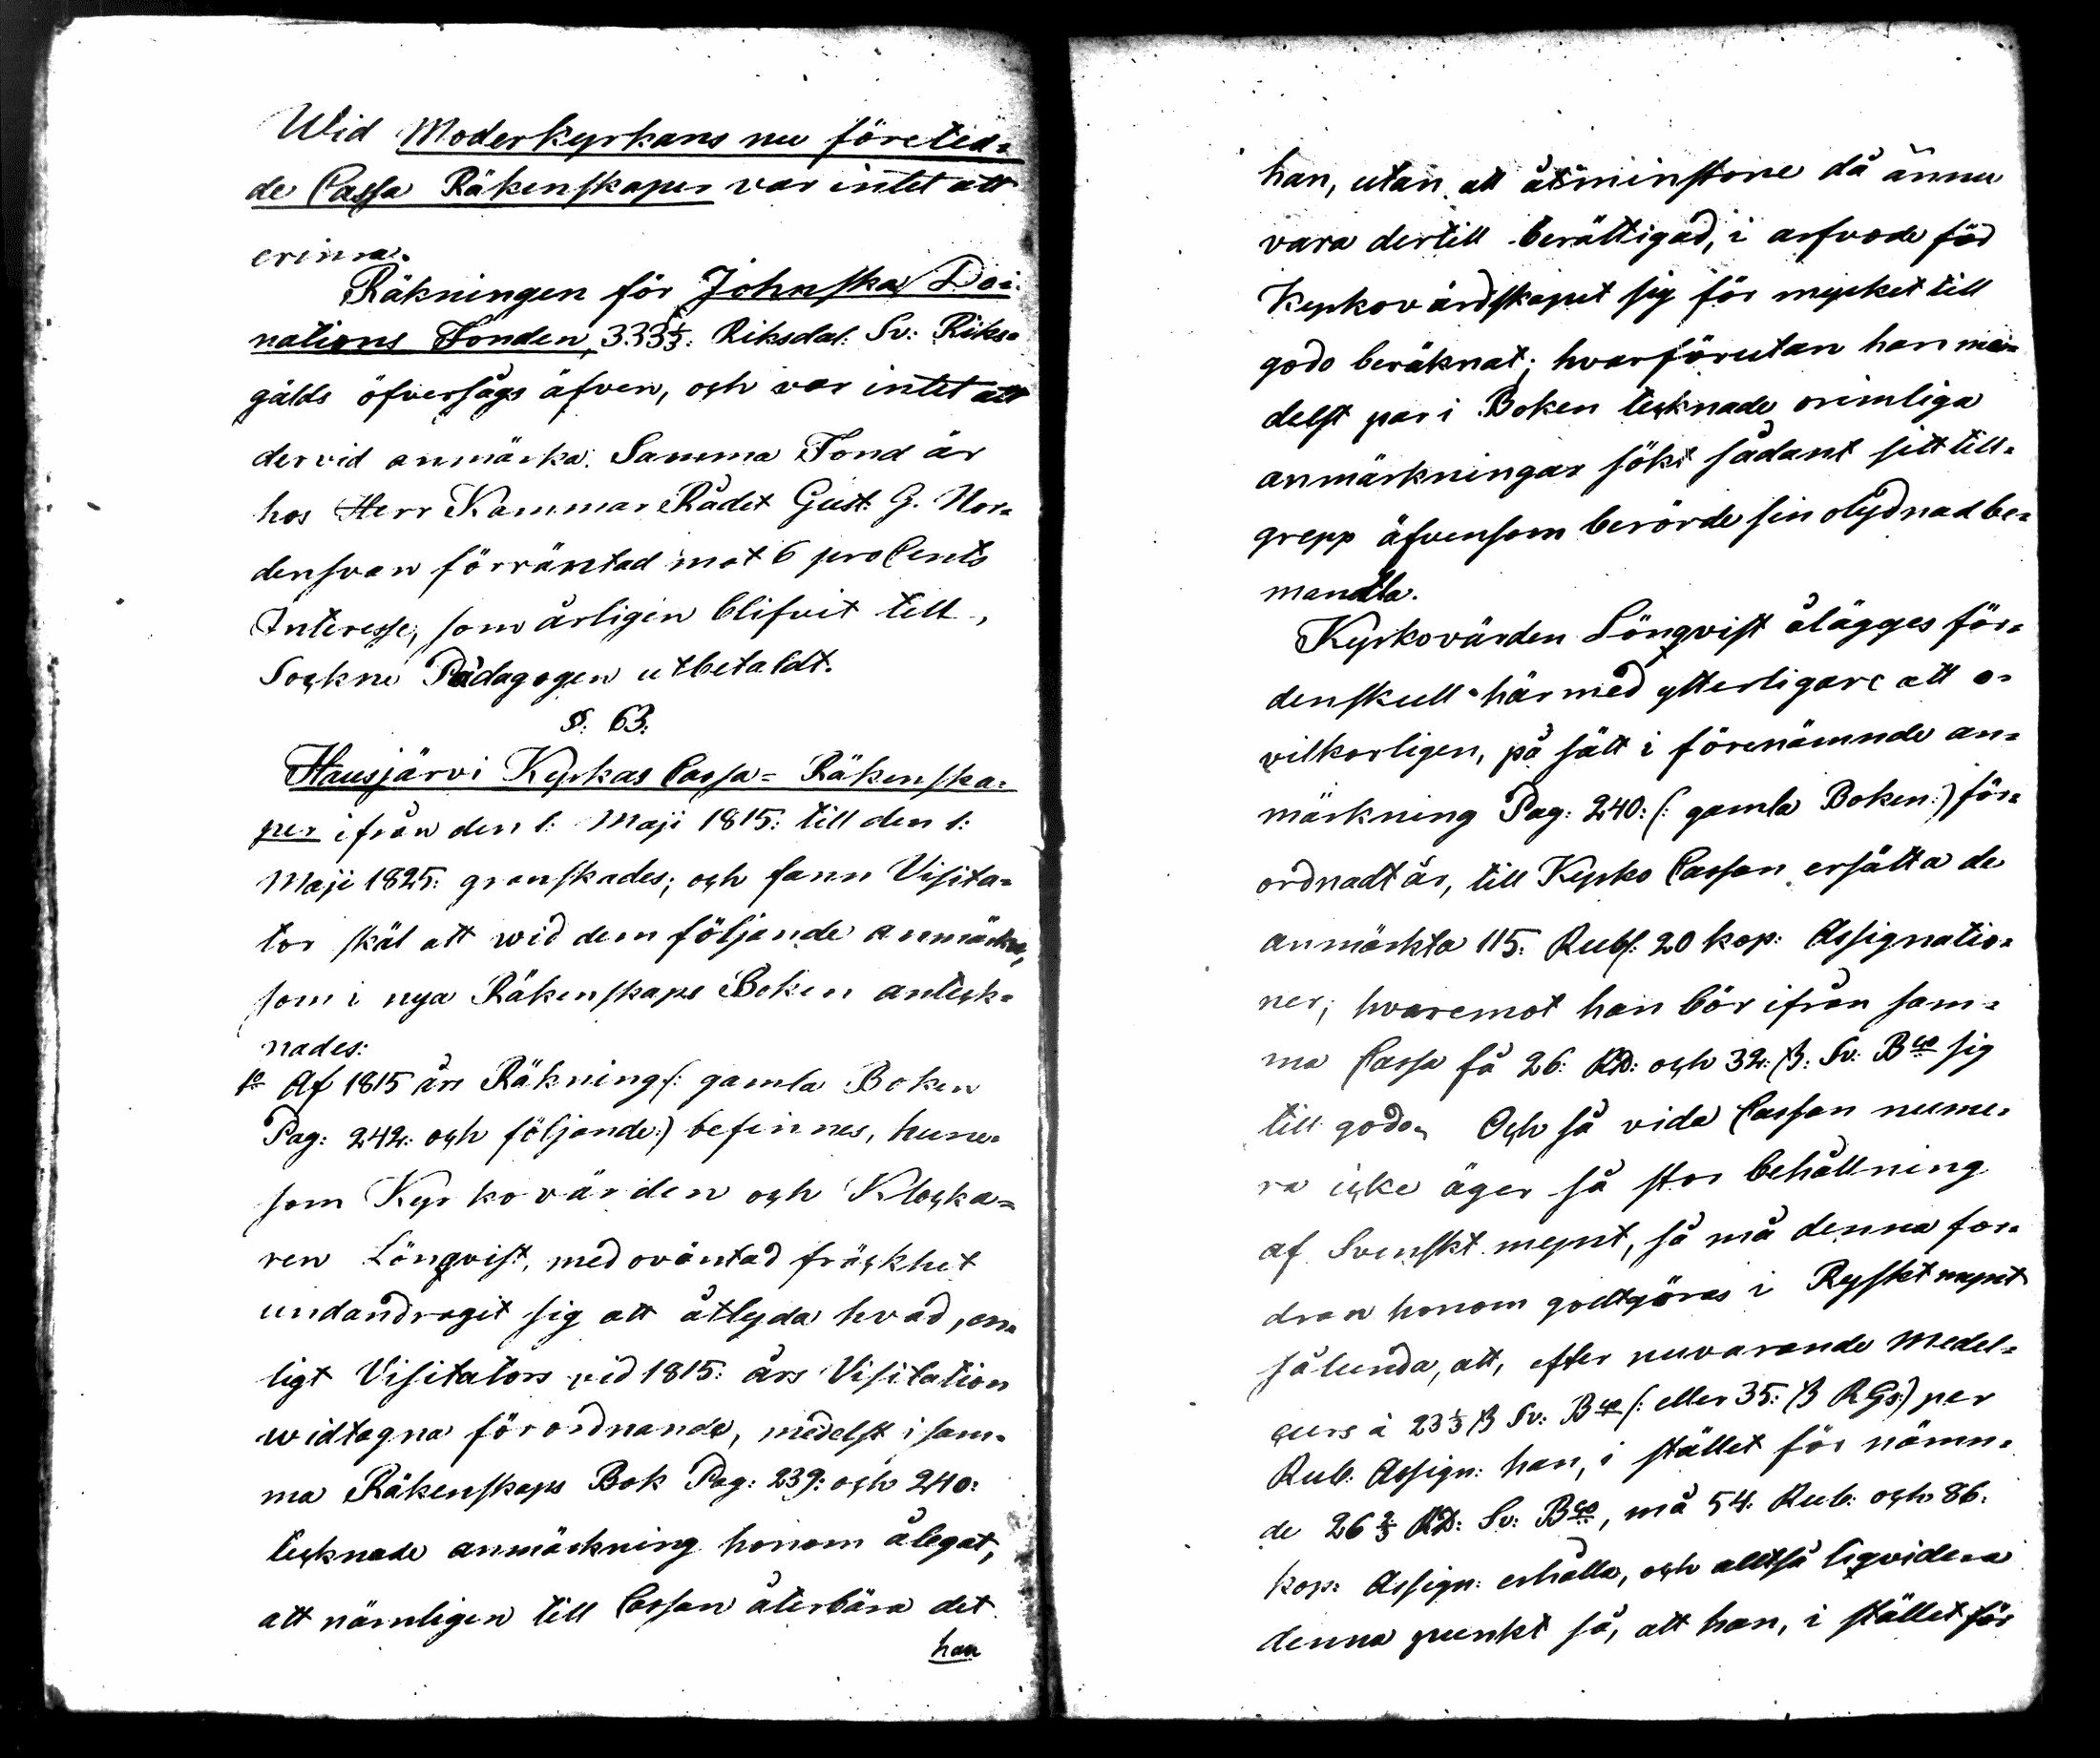 Wid Moderkyrkans nu företed=
de Cassa Räkenskaper var intet att
erinra.
Räkningen för Johnska Do=
nations Fonden, 333 1/3: Riksdal: Sv: Riks=
gälds öfversågs äfven, och var intet att
dervid anmärka. Samma Fond är
hos Herr Kammar Rådet Gust: G. Nor=
densvan förräntad mot 6 pro Cents
Interesse, som årligen blifvit till
Sockne Pädagogen utbetaldt.
§. 63.
Hausjärvi Kyrkas Cassa= Räkenska=
per ifrån den 1: Maji 1815: till den 1:
Maji 1825: granskades; och fann Visita=
tor skäl att wid dem följande anmärka,
som i nya Räkenskaps Boken anteck=
nades:
1o Af 1815 års Räkning (: gamla Boken
Pag: 242: och följande:) befinnes, huru=
som Kyrkovärden och Klocka=
ren Lönqvist, med oväntad fräckhet
undandragit sig att åtlyda hvad, en=
ligt Visitators vid 1815: års Visitation
widtagna förordnande, medelst i sam=
ma Räkenskaps Bok Pag: 239: och 240:
tecknade anmärkning honom ålegat,
att nämligen till Cassan återbära det
han
han, utan att åtminstone då ännu
vara dertill berättigad, i arfvode för
Kyrkovärdskapet sig för mycket till
godo beräknat; hvarförutan han me=
delst par i Boken tecknade orimliga
anmärkningar sökt sådant sitt till=
grepp äfvensom berörde sin olydnad be=
mantla.
Kyrkovärden Lönqvist ålägges för=
denskull härmed ytterligare att o=
vilkorligen, på sätt i förenämnde an=
märkning Pag: 240: (: gamla Boken:) för=
ordnadt är, till Kyrko Cassan ersätta de
anmärkta 115: Rubl: 20 kop: Assignatio=
ner; hvaremot han bör ifrån sam=
ma Cassa få 26: RD: och 32: ß: Sv: Bco sig
till godo. Och så vida Cassan nume=
ra icke äger så stor behållning
af Svenskt mynt, så må denna for=
dran honom godtgöras i Ryskt mynt
sålunda, att, efter nuvarande Medel=
curs à 23 1/3 ß Sv: Bco (: eller 35: ß RGs:) per
Rub: Assign: han, i stället för nämn=
de 26 2/3 RD: Sv: Bco, må 54: Rub: och 86:
kop: Assign: erhålla, och alltså liqvidera
denna punkt så, att han, i stället för